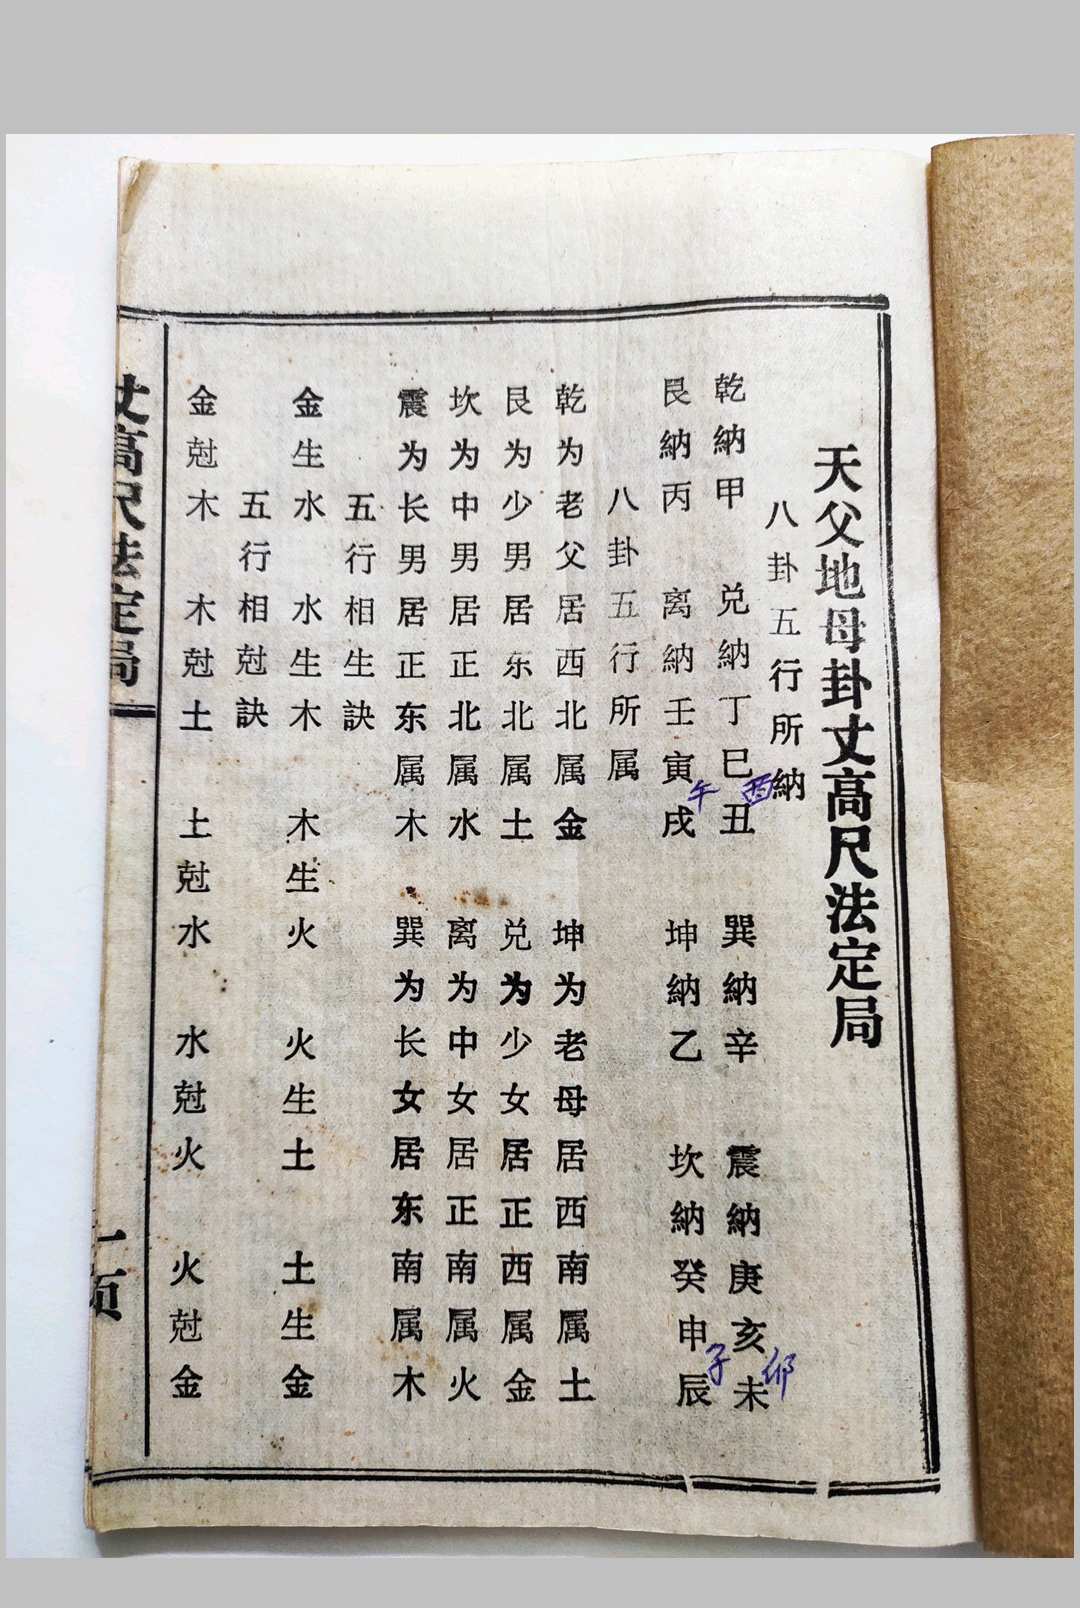 天父地母卦丈高尺法定局
八卦五行所納
乾納甲　兑納丁巳酉丑　巽納辛　震納庚亥卯未
艮納丙　离納壬寅午戌　坤納乙　坎納癸申子辰
八卦五行所属
乾为老父居西北属金　坤为老母居西南属土
艮为少男居东北属土　兑为少女居正西属金
坎为中男居正北属水　离为中女居正南属火
震为长男居正东属木　巽为长女居东南属木
五行相生訣
金生水　水生木　木生火　火生土　土生金
五行相尅訣
金尅木　木尅土　土尅水　水尅火　火尅金
丈高尺法定局
一页